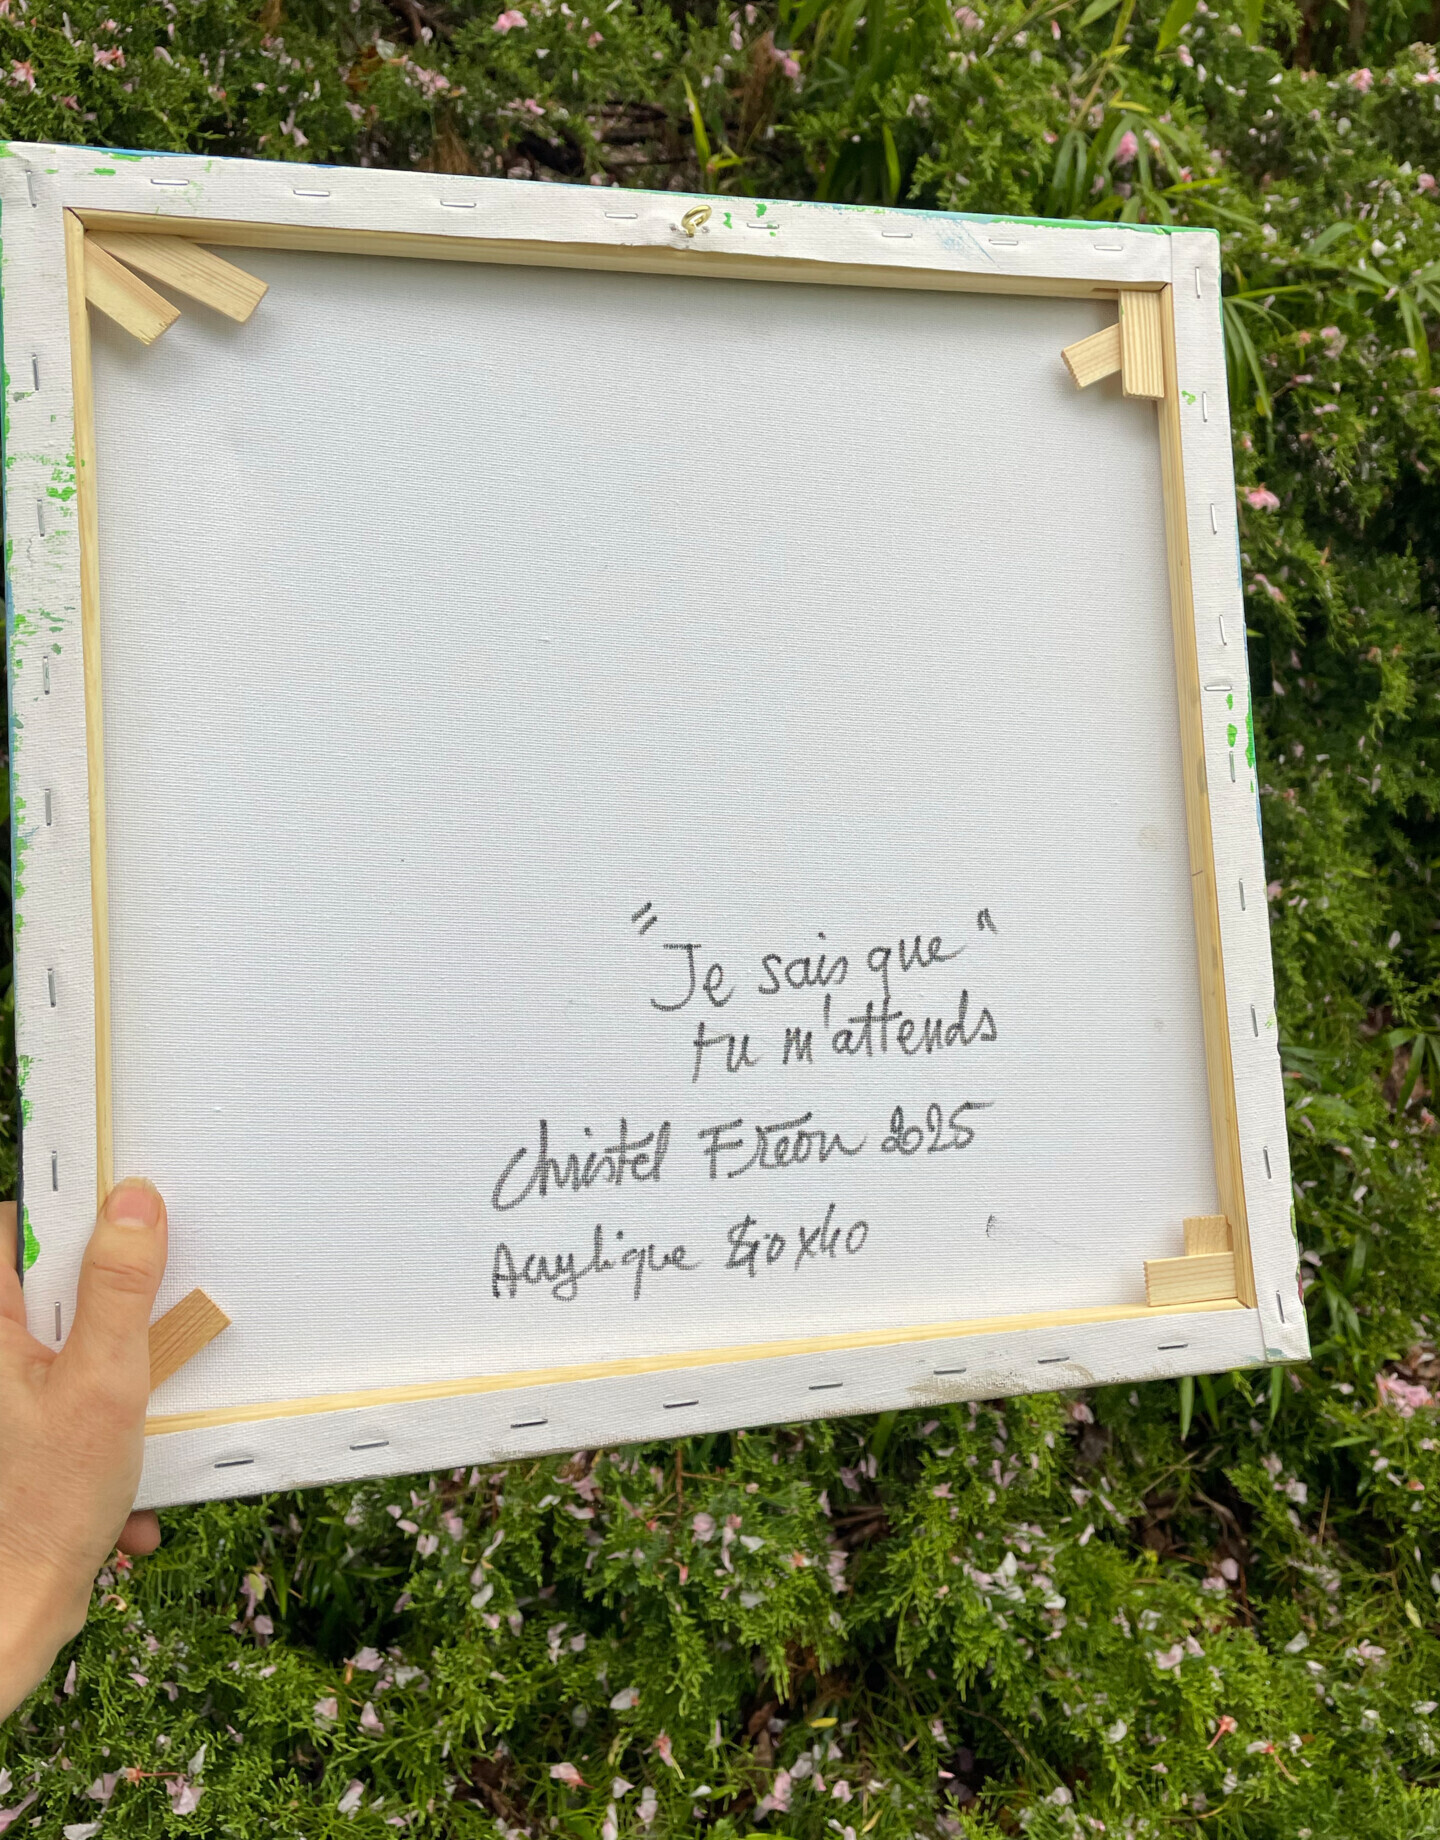 "Je sais que"
tu m'attends
Christel Fréon 2025
Acrylique 40x40